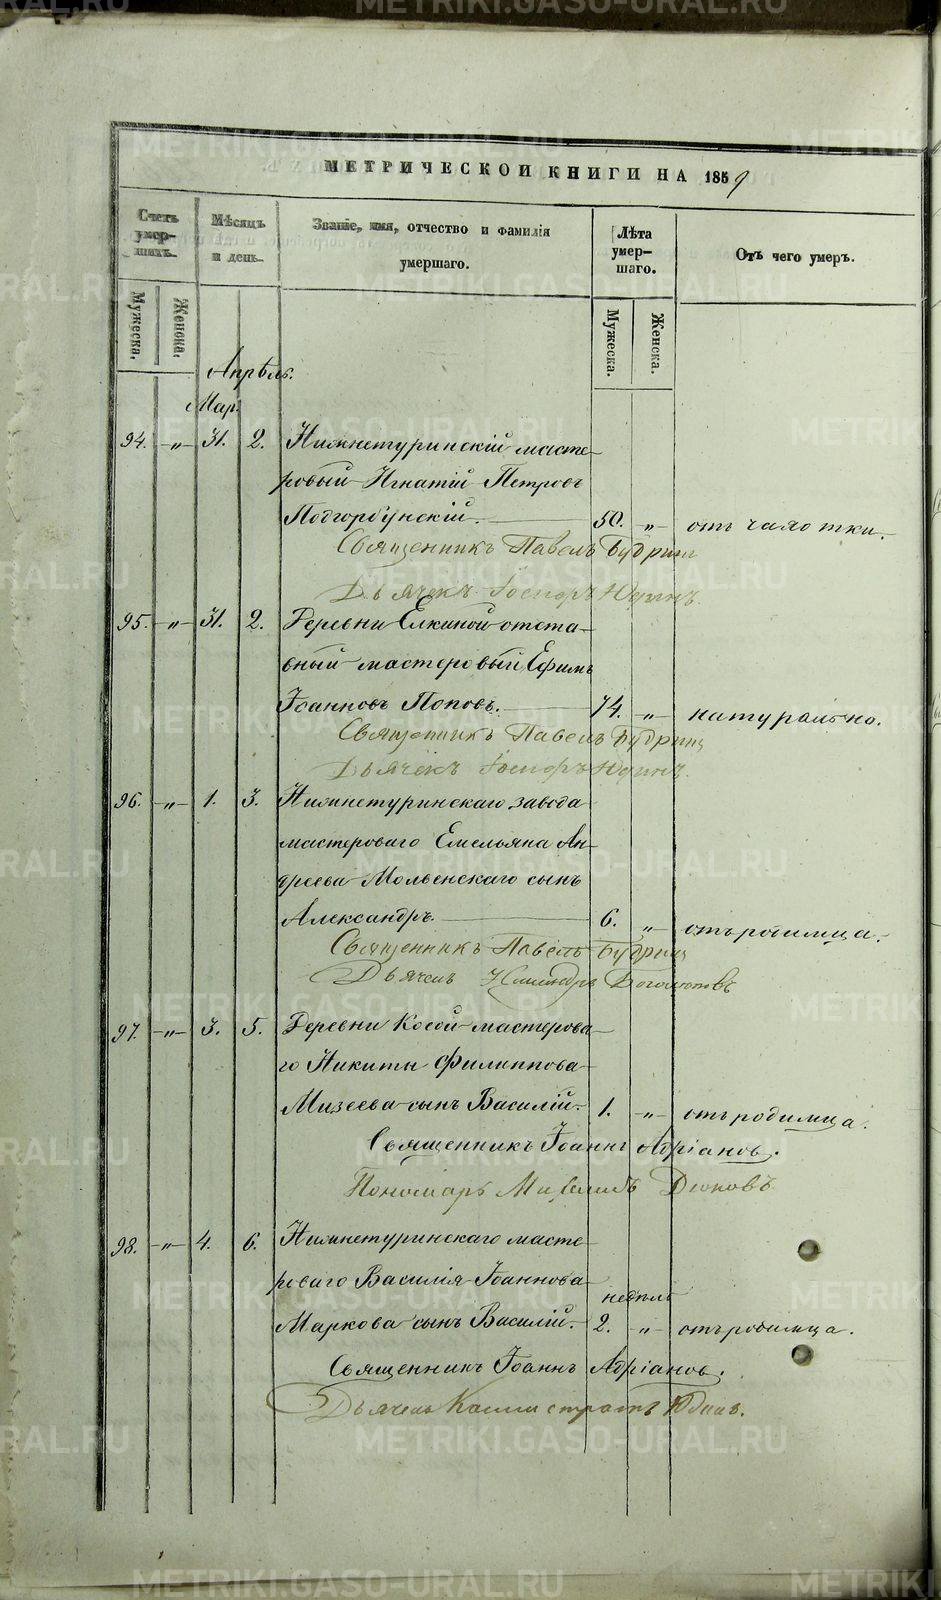 МЕТРИЧЕСКОЙ КНИГИ НА 1859
Счетъ умер-шихъ.
Мѣсяцъ и день.
Званіе, имя, отчество и фамилія умершаго.
Лѣта умер-шаго.
Отъ чего умеръ.
Мужеска. Женска.
Мужеска. Женска.
Апрѣль.
Мар.
94. „ 31. 2. Нижнетуринскій масте-
ровый Игнатій Петровъ
Подгорбунскій. 50. „ отъ чахотки.
Священникъ Павелъ Будринъ
Дьячекъ Іосифъ Юдинъ.
95. „ 31. 2. Деревни Елкиной отста-
вный мастеровый Ефимъ
Іоанновъ Поповъ. 74. „ натурально.
Священникъ Павелъ Будринъ
Дьячекъ Іосифъ Юдинъ.
96. „ 1. 3. Нижнетуринскаго завода
мастероваго Емельяна Ан-
дреева Мольвенскаго сынъ
Александръ. 6. „ отъ родимца.
Священникъ Павелъ Будринъ
Дьячекъ
97. „ 3. 5. Деревни Косой мастерова-
го Никиты Филиппова
Мизеева сынъ Василій. 1. „ отъ родимца.
Священникъ Іоаннъ Адріановъ.
Пономарь Михаилъ Дюковъ
98. „ 4. 6. Нижнетуринскаго масте-
роваго Василія Іоаннова
недѣль
Маркова сынъ Василій. 2. „ отъ родимца.
Священникъ Іоаннъ Адріановъ.
Дьячекъ Калистратъ Юдинъ.
METRIKI.GASO-URAL.RU